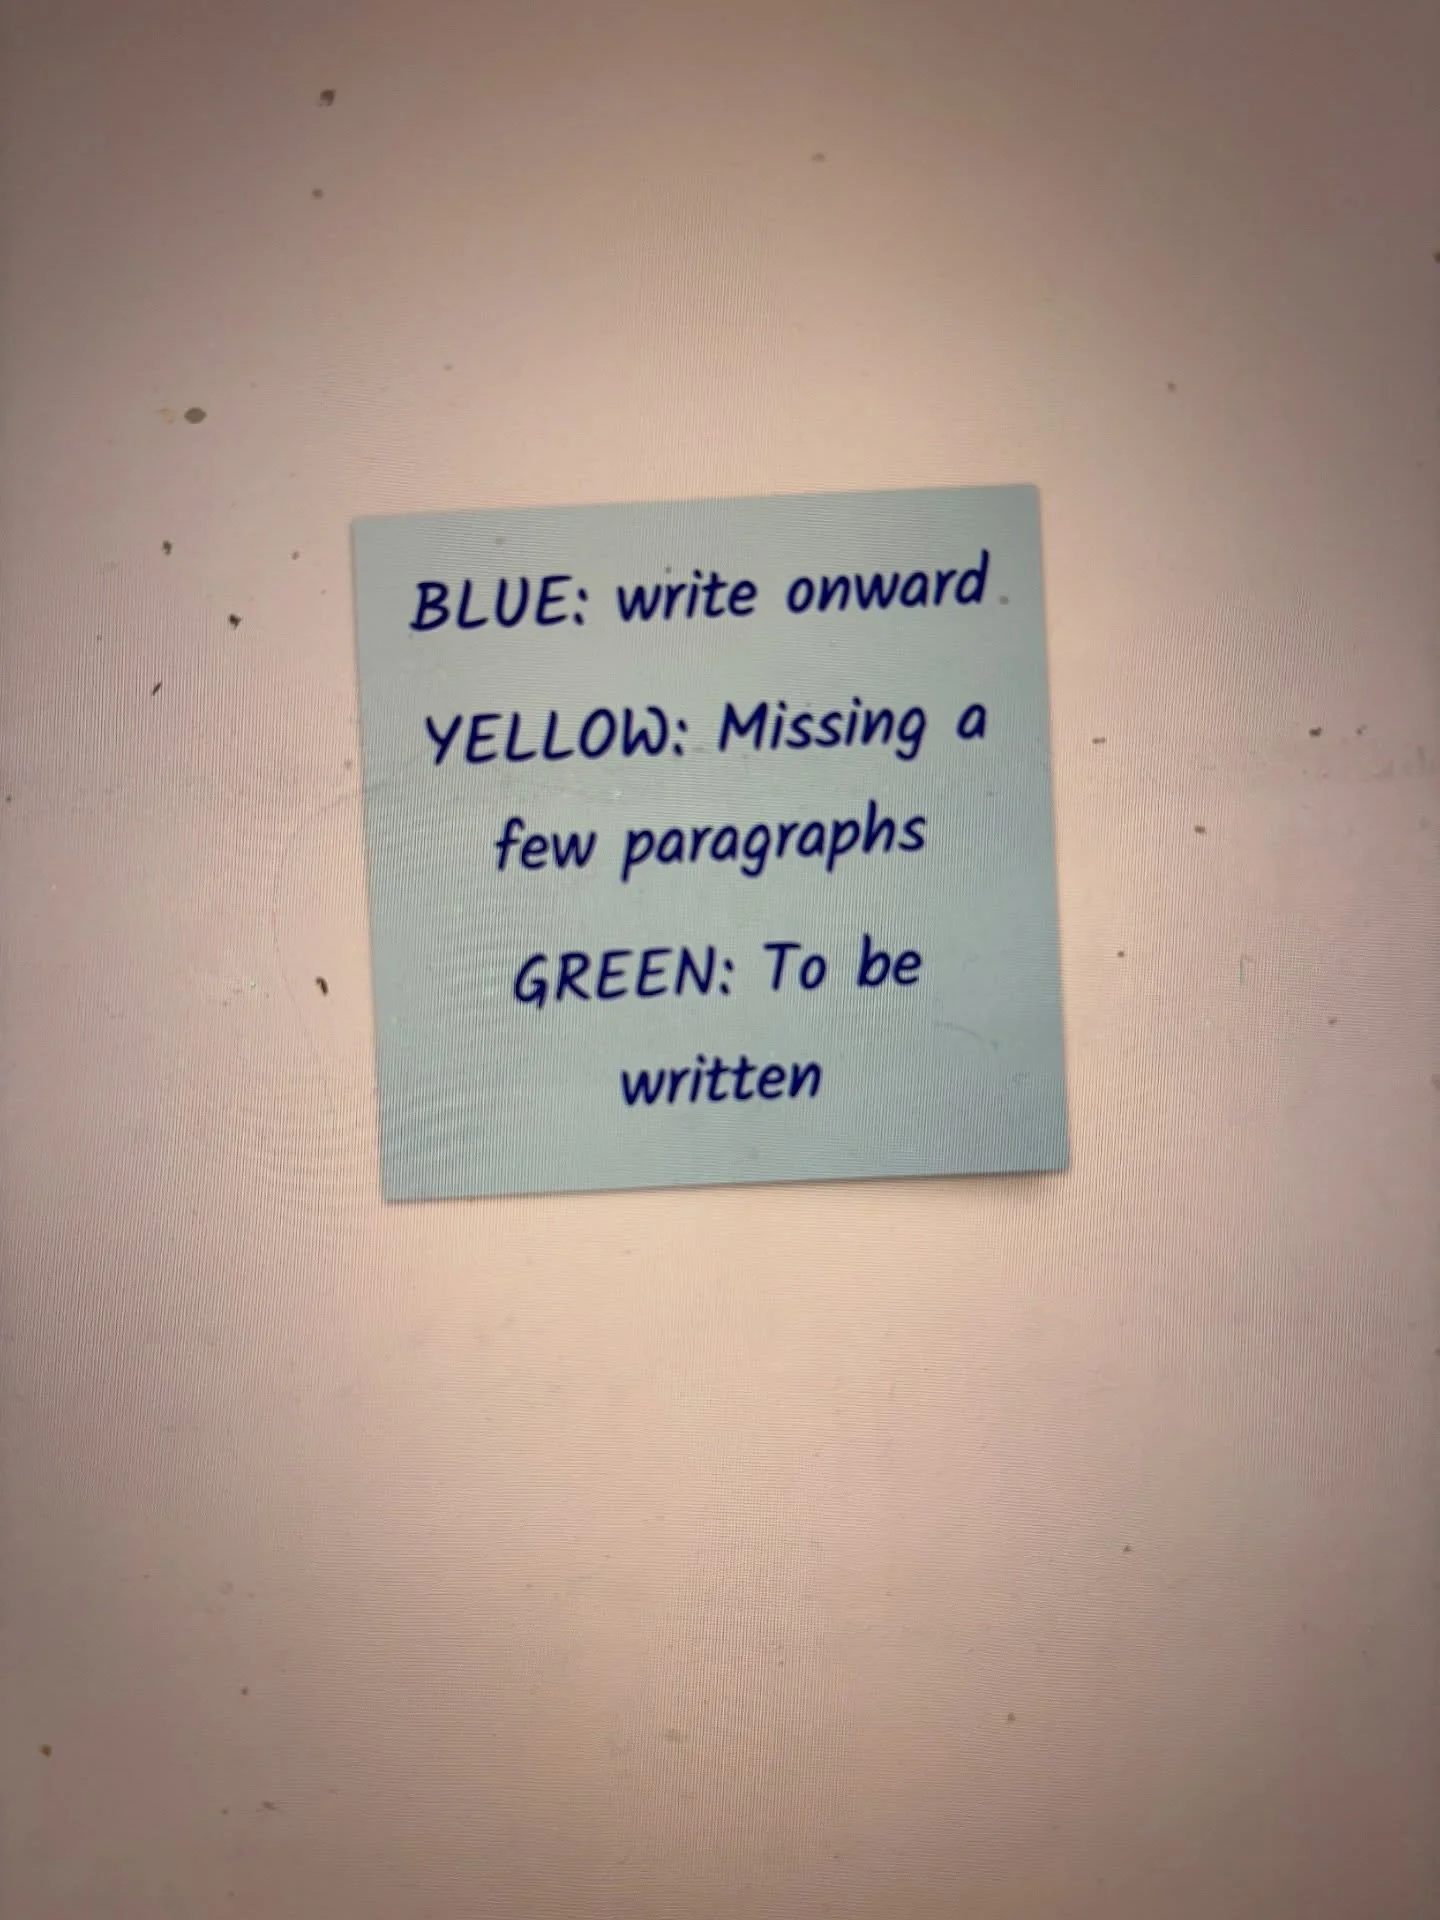 BLUE: write onward
YELLOW: Missing a
few paragraphs
GREEN: To be
written